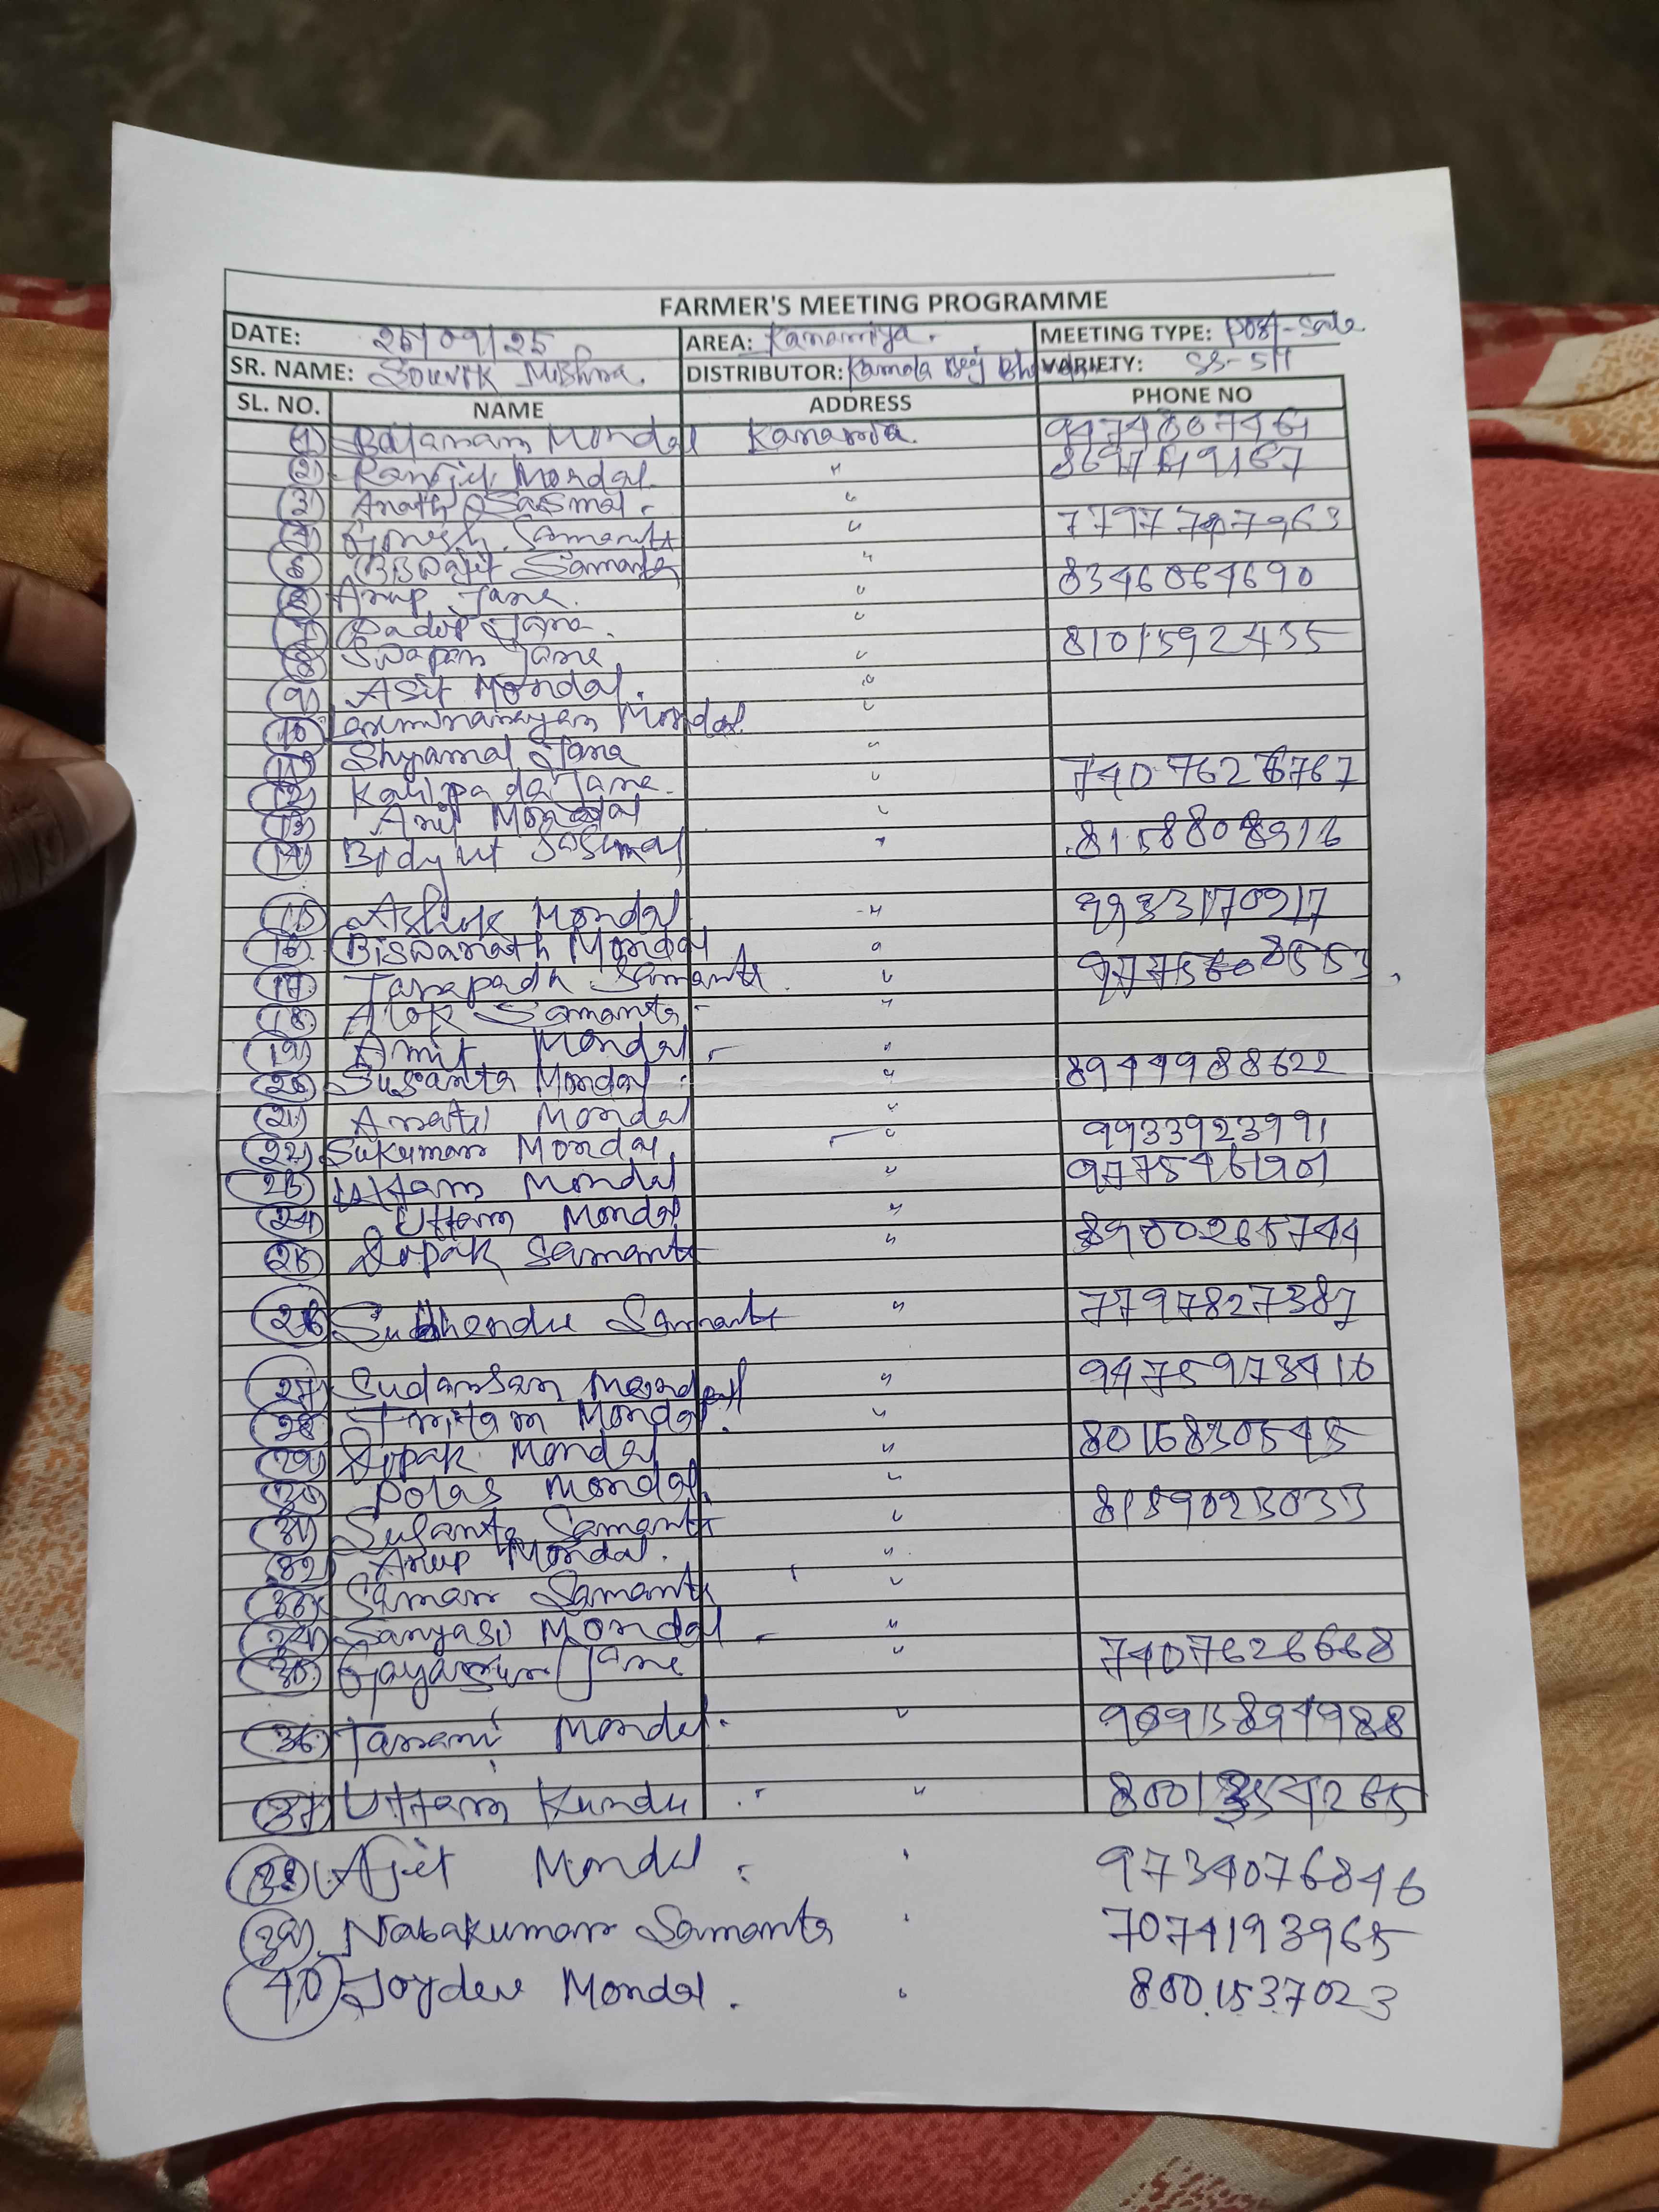 FARMER'S MEETING PROGRAMME
DATE: 25/09/25 AREA: Kanamiya. MEETING TYPE: post-sale
SR. NAME: Souvik Mishra. DISTRIBUTOR: Kamala Beej VARIETY: SS-511
SL. NO. NAME ADDRESS PHONE NO
1) Balaram Mondal Kanamia
2) Ranjit Mondal. " 8697549167
3) Anath Sasmal. "
4) Ganesh Samanta " 7797797963
5) Biswajit Samanta "
6) Arup Jana. " 8346064690
7) Badol Jana. "
8) Swapan Jana " 8101592435
9) Asit Mondal. "
10) Laxminarayan Mondal. "
11) Shyamal Jana "
12) Kalipada Jana. " 7407626767
13) Anil Mondal "
14) Bidyut Sasmal " 8158808916
15) Ashok Mondal " 9933170917
16) Biswanath Mondal "
17) Tarapada Samanta. "
18) Alok Samanta "
19) Amit Mondal "
20) Susanta Mondal " 8944988622
21) Anati Mondal "
22) Sukumar Mondal " 9933923991
23) Uttam Mondal " 9775461901
24) Uttam Mondal "
25) Dipak Samanta " 8900265744
26) Subhendu Samanta " 7797827387
27) Sudarsan Mondal " 9475973410
28) Mondal. "
29) Dipak Mondal " 8016830545
30) Polas Mondal. "
31) Susanta Samanta " 8159023033
32) Arup Mondal. "
33) Samar Samanta "
34) Sanyasi Mondal "
35) Jana " 7407626668
36) Mondal. " 9091589498
37) Uttam Kundu " 8001354265
38) Ajit Mondal. " 9734076846
39) Nabakumar Samanta " 7074193965
40) Joydev Mondal. " 8001537023